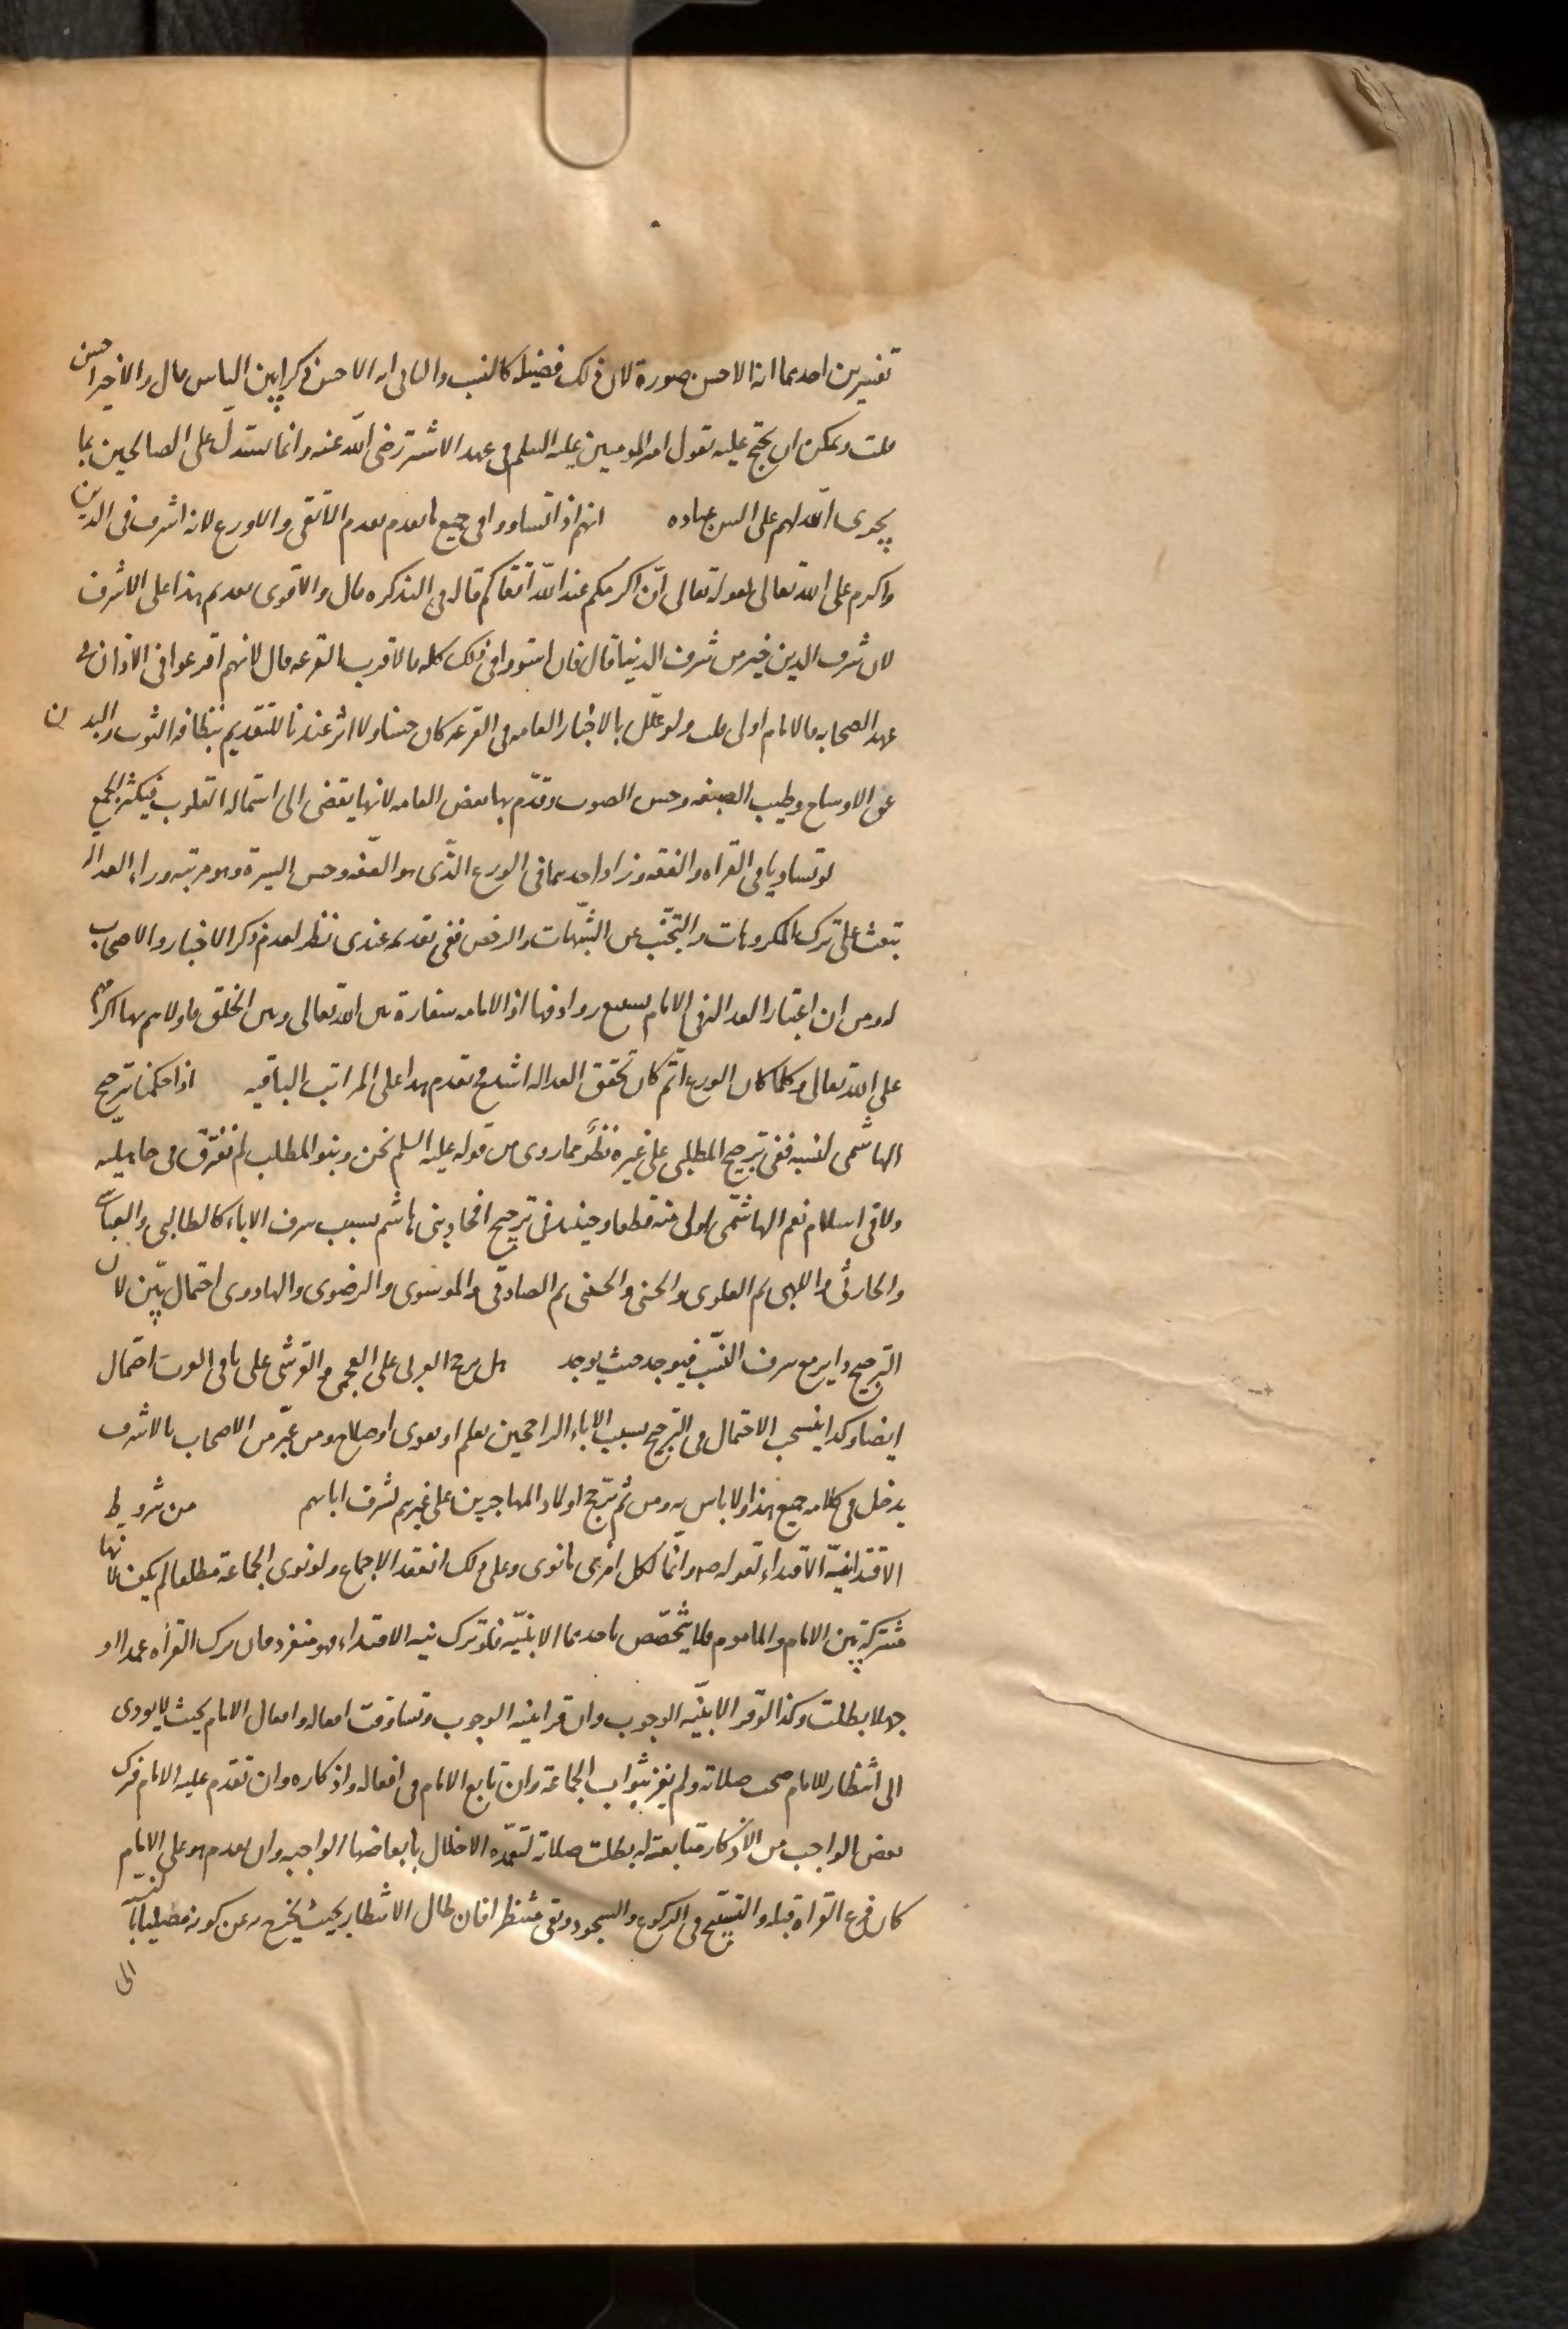 تفسيرين احدهما انه الاحسن صورة لان ذلك فضيلة كالنسب والثانى انه الاحسن ذكرا بين الناس قال والاخير احسن
قلت ويمكن ان يحتج عليه بقول امير المومنين عليه السلم فى عهد الاشتر رضى الله عنه وانما يستدل على الصالحين بما
يجرى الله لهم على السن عباده انهم اذا تساووا فى جميع ما تقدم يقدم الاتقى والاورع لانه اشرف فى الدين
واكرم على الله تعالى لقوله تعالى ان اكرمكم عند الله اتقاكم قاله فى التذكره قال والاقوى تقديم هذا على الاشرف
لان شرف الدين خير من شرف الدنيا قال فان استووا فى ذلك كله فالاقرب القرعه قال لانهم اقرعوا فى الاذان فى
عهد الصحابه فالامام اولى قلت ولو علل بالاخبار العامه فى القرعه كان حسنا ولا اثر عندنا للتقديم بنظافه الثوب والبدن
عن الاوساخ وطيب الصنعه وحسن الصوت وقدم بها بعض العامه لانها يفضى الى استماله القلوب فيكثر الجمع
لو تساويا فى القراه والفقه وزاد احدهما فى الورع الذى هو العفه وحسن السيرة وهو مرتبه وراء العداله
تبعث على ترك المكروهات والتجنب عن الشبهات والرخص ففى تقديمه عندى نظر لعدم ذكر الاخبار والاصحاب
له ومن ان اعتبار العداله فى الامام يستتبع روادفها اذ الامامه سفارة بين الله تعالى وبين الخلق فاولاهم بها اكرمهم
على الله تعالى وكلما كان الورع اتم كان تحقق العداله اشد فح يقدم هذا على المراتب الباقيه اذا حكمنا ترجيح
الهاشمى لنسبه ففى ترجيح المطلبى على غيره نظر مما روى من قوله عليه السلم نحن وبنو المطلب لم نفترق فى جاهلية
ولا فى اسلام نعم الهاشمى اولى منه قطعا وحينئذ فى ترجيح افخاذ بنى هاشم بسبب شرف الاباء كالطالبى والعباسى
والحارثى واللهبى ثم العلوى والحسنى والحسينى ثم الصادقى والموسوى والرضوى والهادوى احتمال بين لان
الترجيح داير مع شرف النسب فيوجد حيث يوجد هل يرجح العربى على العجمى والقرشى على باقى العرب احتمال
ايضا وكذا ينسحب الاحتمال فى الترجيح بسبب الاباء الراجحين بعلم او تقوى او صلاح ومن عبر من الاصحاب بالاشرف
يدخل فى كلامه جميع هذا ولا باس به ومن ثم يرجح اولاد المهاجرين على غيرهم لشرف ابائهم من شروط
الاقتدا نية الاقتداء لقوله ص وانما لكل امرى ما نوى وعلى ذلك انعقد الاجماع ولو نوى الجماعة مطلقا لم يكف لانها
مشتركة بين الامام والماموم فلا يتخصص باحدهما الا بنية فلو ترك نيه الاقتداء فهو منفرد فان ترك القرأه عمدا او
جهلا بطلت وكذا لو قرا لا بنيه الوجوب وان قرا بنيه الوجوب وتساوقت افعاله وافعال الامام بحيث لا يودى
الى انتظار للامام صحت صلاته ولم يفز بثواب الجماعة وان تابع الامام فى افعاله واذكاره وان تقدم عليه الامام فترك
بعض الواجب من الاذكار متابعة له بطلت صلاته لتعمده الاخلال بابعاضها الواجبه وان تقدم هو على الامام
كان فرغ القراة قبله والتسبيح فى الركوع والسجود وبقى منتظرا فان طال الانتظار بحيث يخرج به عن كونه مصليا
الى